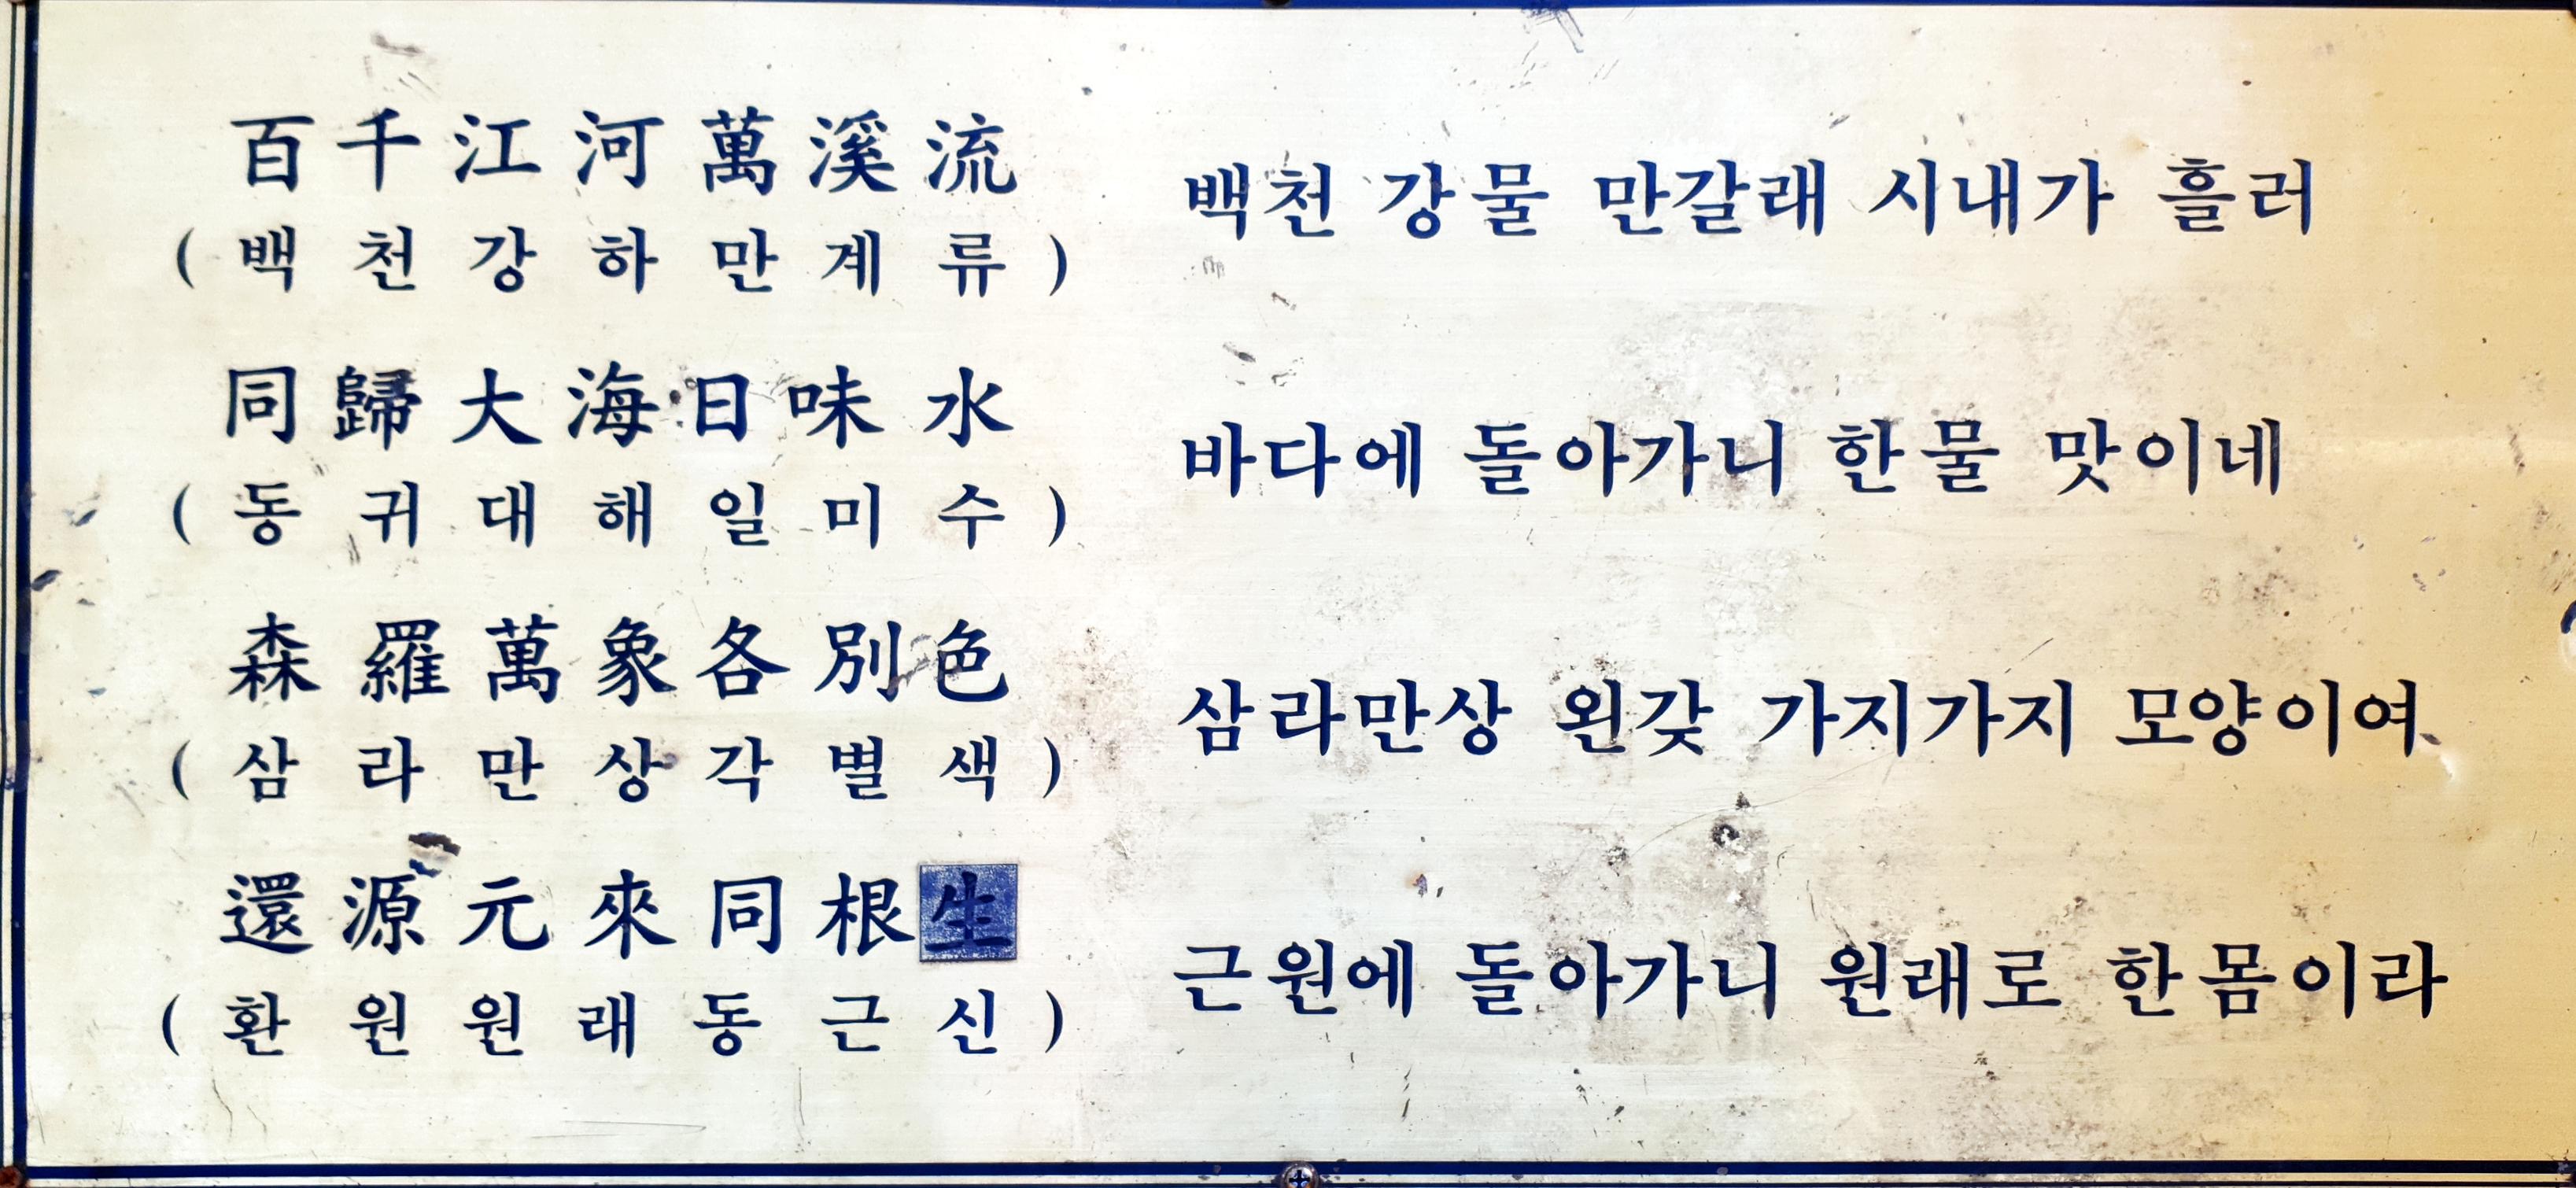 百千江河萬溪流
(백천강하만계류)
백천 강물 만갈래 시내가 흘러
同歸大海日味水
(동귀대해일미수)
바다에 돌아가니 한물 맛이네
森羅萬象各別色
(삼라만상각별색)
삼라만상 왼갖 가지가지 모양이여
還源元來同根生
(환원원래동근신)
근원에 돌아가니 원래로 한몸이라